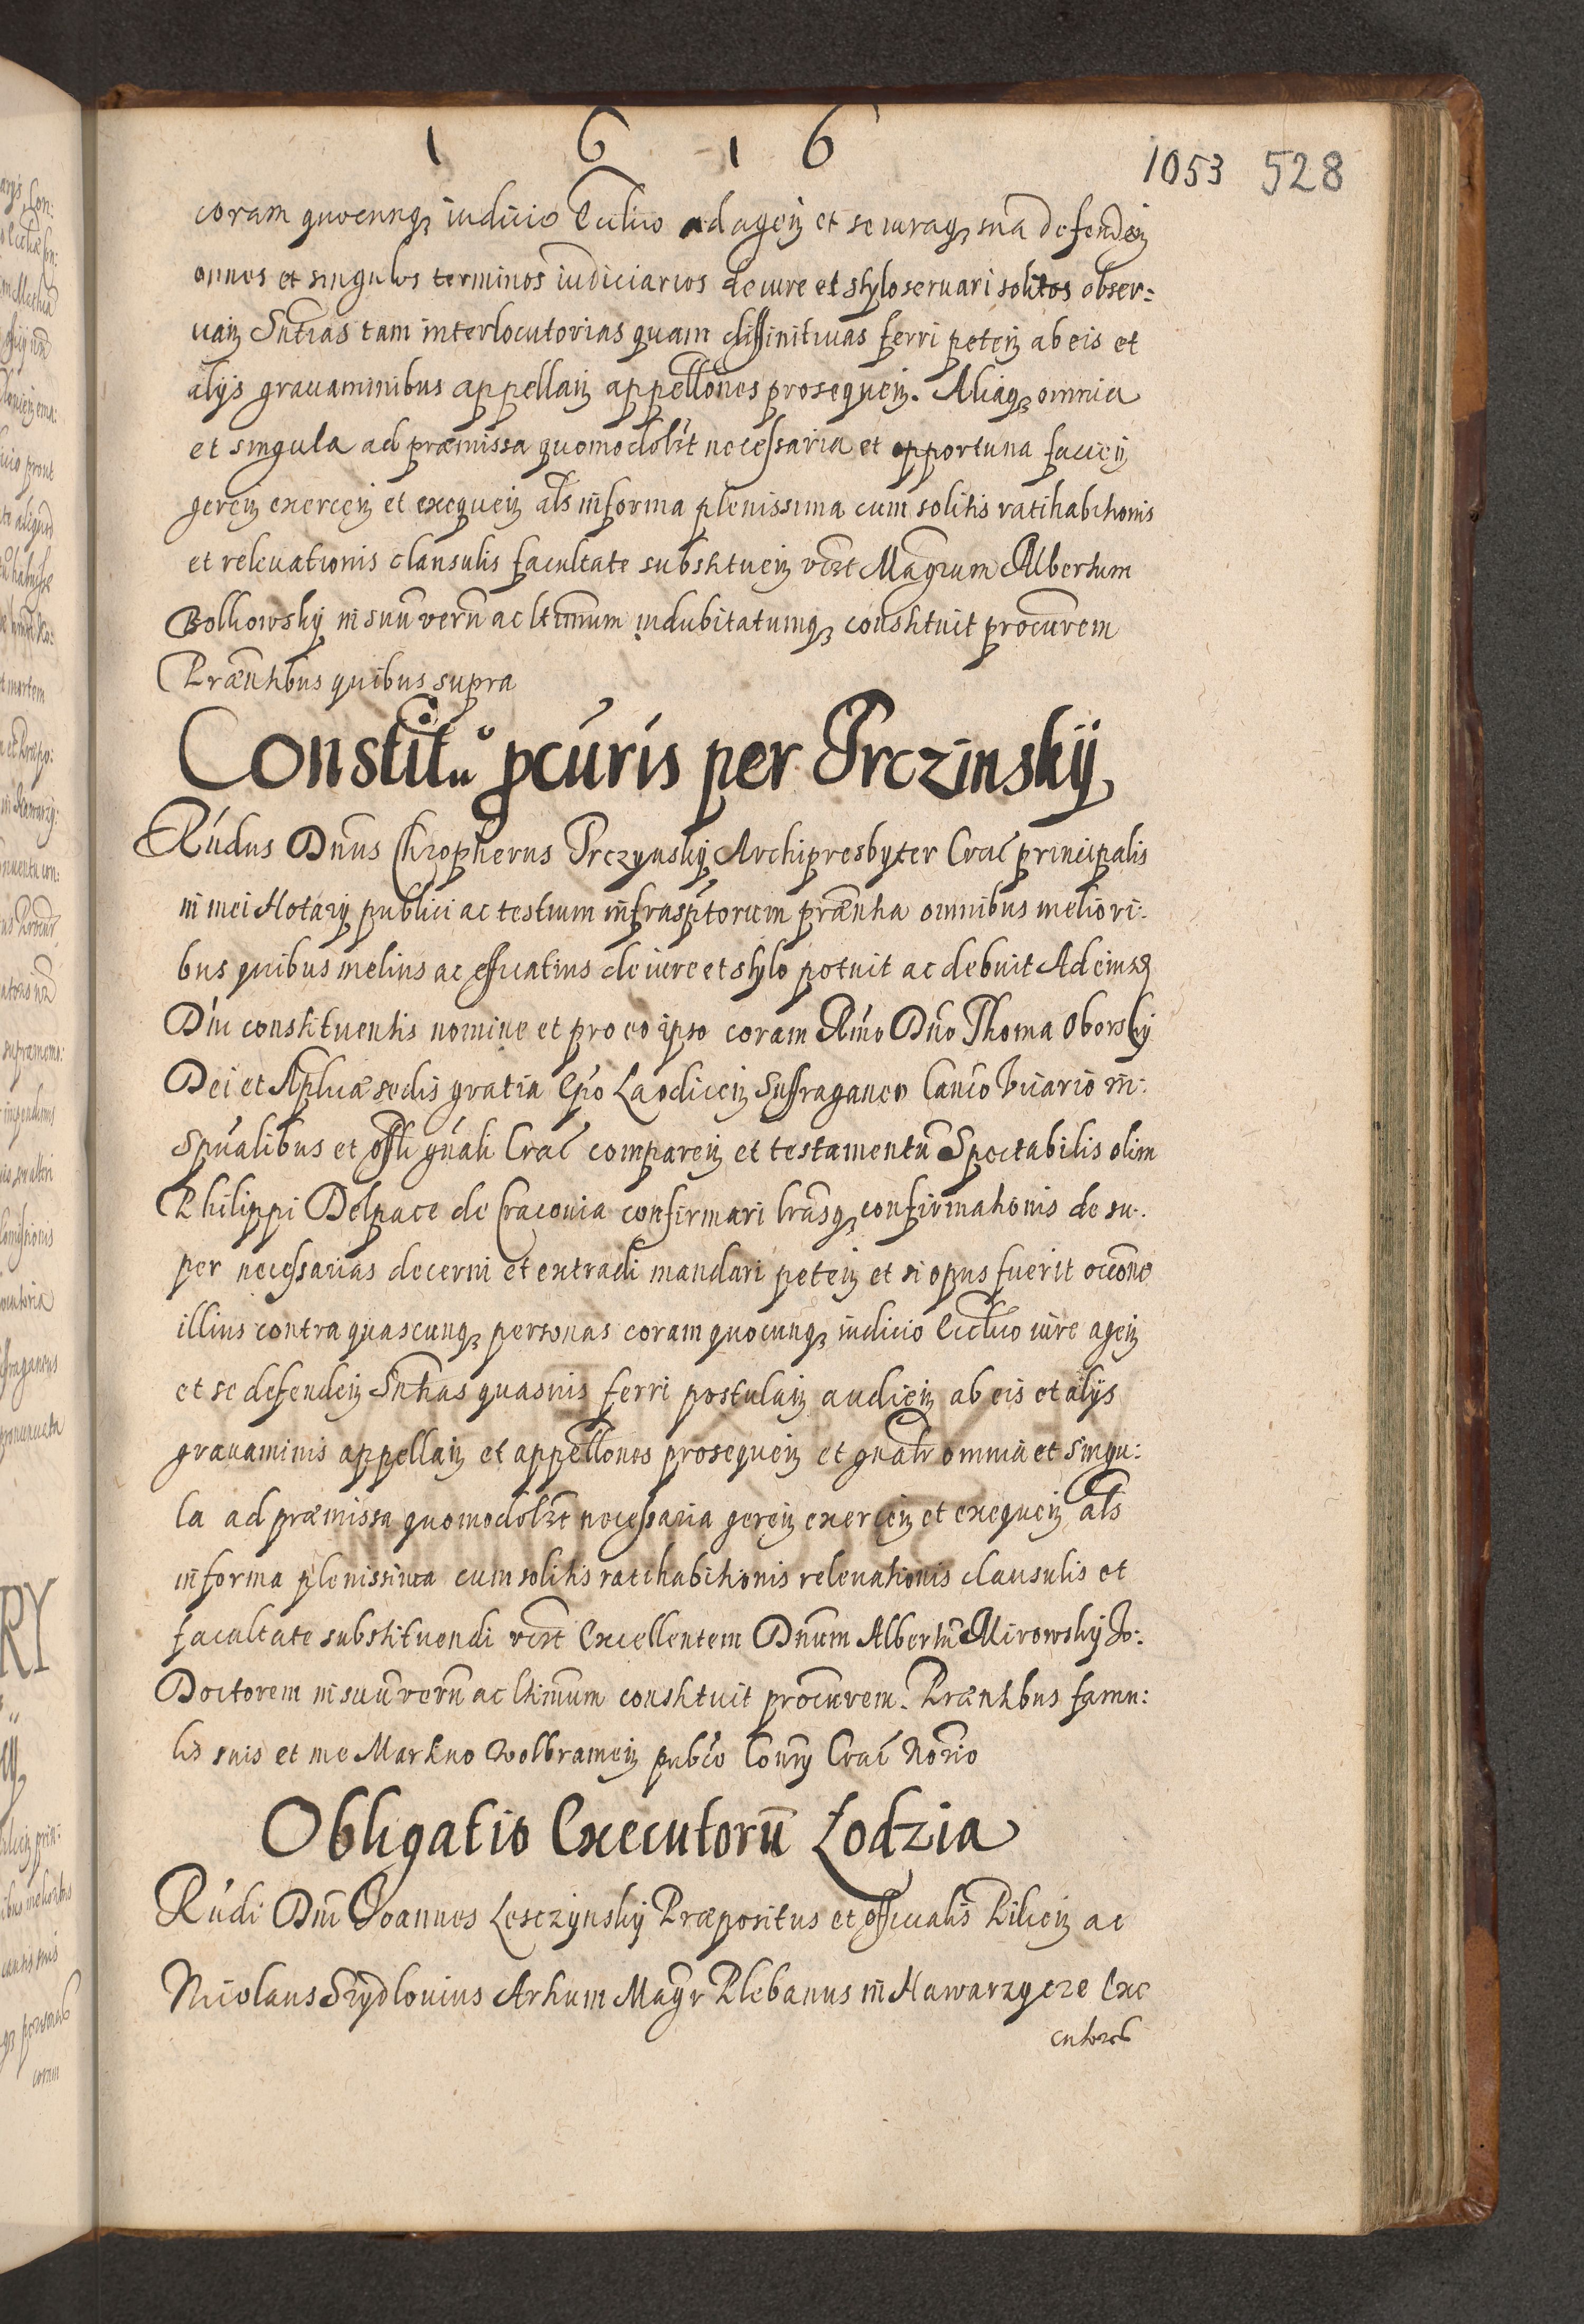 1 6 1 6
1053 528
coram quocunq iudicio Ecclico ad agen et se iuraq sua defenden
omnes et singulos terminos iudiciarios de iure et stylo seruari solitos obser:
uan Sntias tam interlocutorias quam diffinitiuas ferri peten ab eis et
alijs grauaminibus appellan appellones prosequen. Aliaq omnia
et singula ad præmissa quomodolzt necessaria et opportuna facien
geren exercen et exequen als in forma plenissima cum solitis ratihabitionis
et releuationis clausulis facultate substituen vczt Magrum Albertum
Bolkowsky in suu veru ac ltimum indubitatumq constituit procurem
Præntibus quibus supra
Constitu° pcuris per Trczinskij
Rudus Dnus Chropherus Trczynskij Archipresbyter Crac principalis
in mei Notarij publici ac testium infrasptorum præntia omnibus meliori:
bus quibus melius ac efficatius de iure et stylo potuit ac debuit Ad eiusq
Dni constituentis nomine et pro eo ipso coram Rmo Dno Thoma Oborskij
Dei et Aplicæ sedis gratia Epo Laodicen Suffraganeo Canco Vicario in:
Spualibus et offli gnali Crac comparen et testamentu Spectabilis olim
Philippi Delpace de Cracouia confirmari lrasq confirmationis de su:
per necessarias decerni et extradi mandari peten et si opus fuerit occone
illius contra quascunq personas coram quocunq iudicio Ecclico iure agen
et se defenden Sntias quasuis ferri postulan audien ab eis et alijs
grauaminis appellan et appellones prosequen et gnalr omnia et singu:
la ad præmissa quomodolzt necessaria geren exercen et exequen als
in forma plenissima cum solitis ratihabitionis releuationis clausulis et
facultate substituendi vczt Excellentem Dnum Albertu Mirowskij Jv:
Doctorem in suu veru ac ltimum constituit procurem. Præntibus famu:
lis suis et me Martino Wolbramen pubco Consrij Crac Norio
Obligatio Executoru Lodzia
Rudi Dni Joannes Lesczynskij Præpositus et officialis Pilcen ac
Nicolaus Szydlouius Artium Magr Plebanus in Nawarzycze Exe
cutores